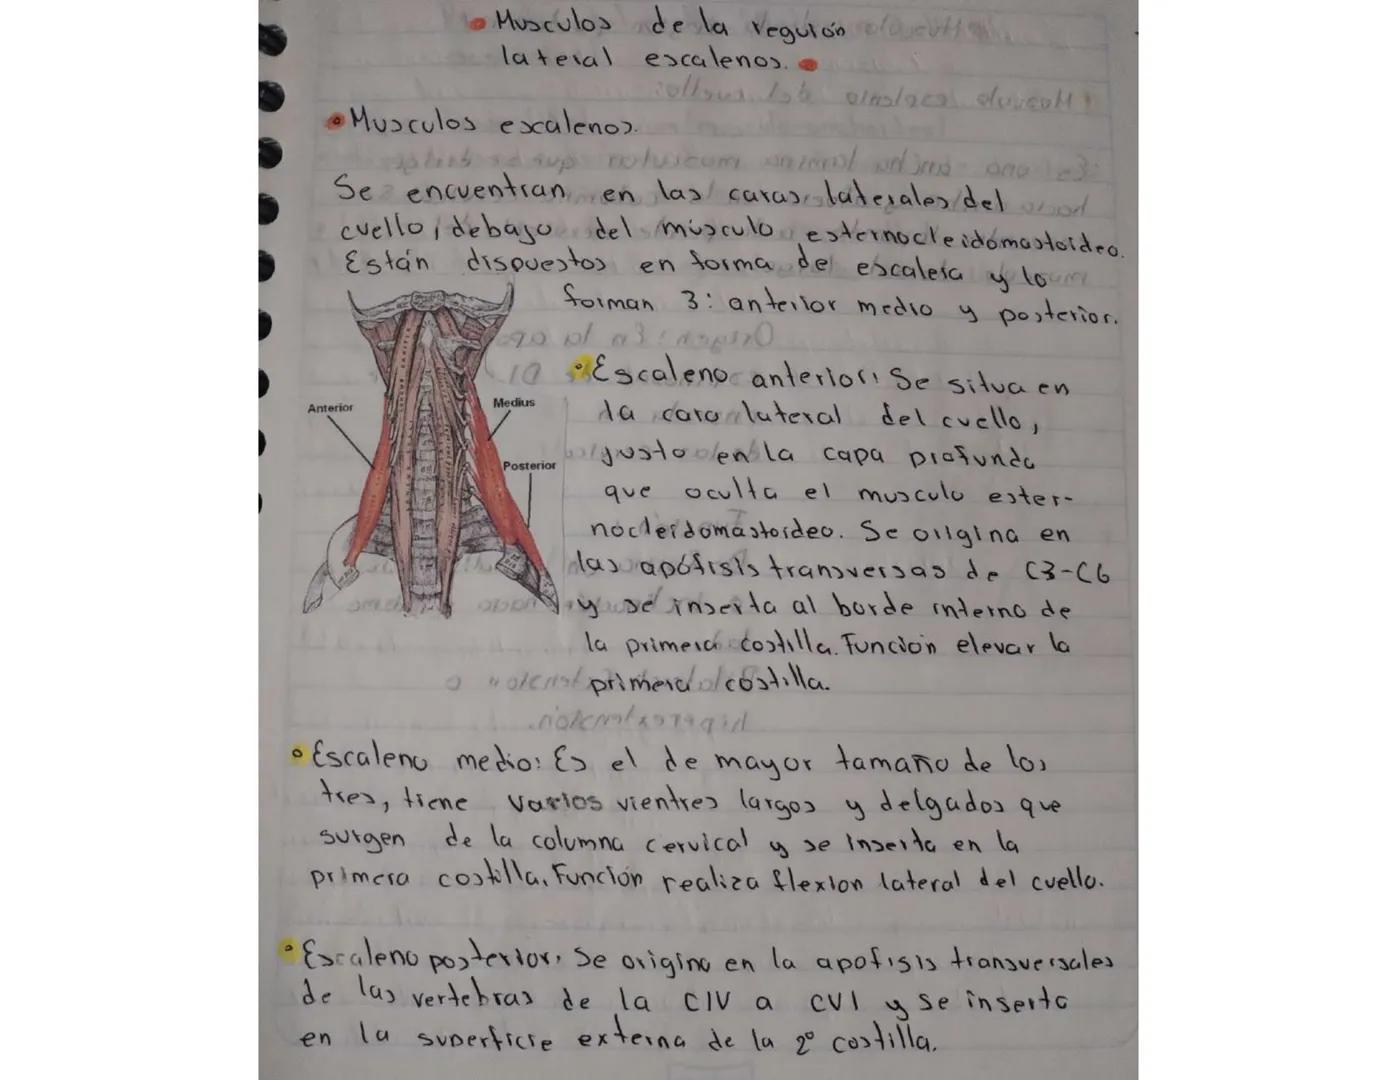 Musculos de la reguión
lateral escalenos.
Musculos escalenos.
Se encuentran en las caras laterales del
cuello, debajo del músculo esternocleidomastoideo.
Están dispuestos en forma de escalera y lo
forman 3: anterior medio y posterior.
Anterior
Medius
Posterior
Escaleno anterior: Se situa en
la cara lateral del cuello,
justo en la capa profunda
que oculta el musculo ester-
nocleidomastoideo. Se origina en
las apófisis transversas de C3-C6
y se inserta al borde interno de
la primera costilla. Función elevar la
primera costilla.
Escaleno medio: Es el de mayor tamaño de los
tres, tiene varios vientres largos y delgados que
surgen de la columna cervical y se inserta en la
primera costilla. Función realiza flexion lateral del cuello.
Escaleno posterior: Se origina en la apofisis transversales
de las vertebras de la CIV a CVI y se inserta
en la superficie externa de la 2º costilla.